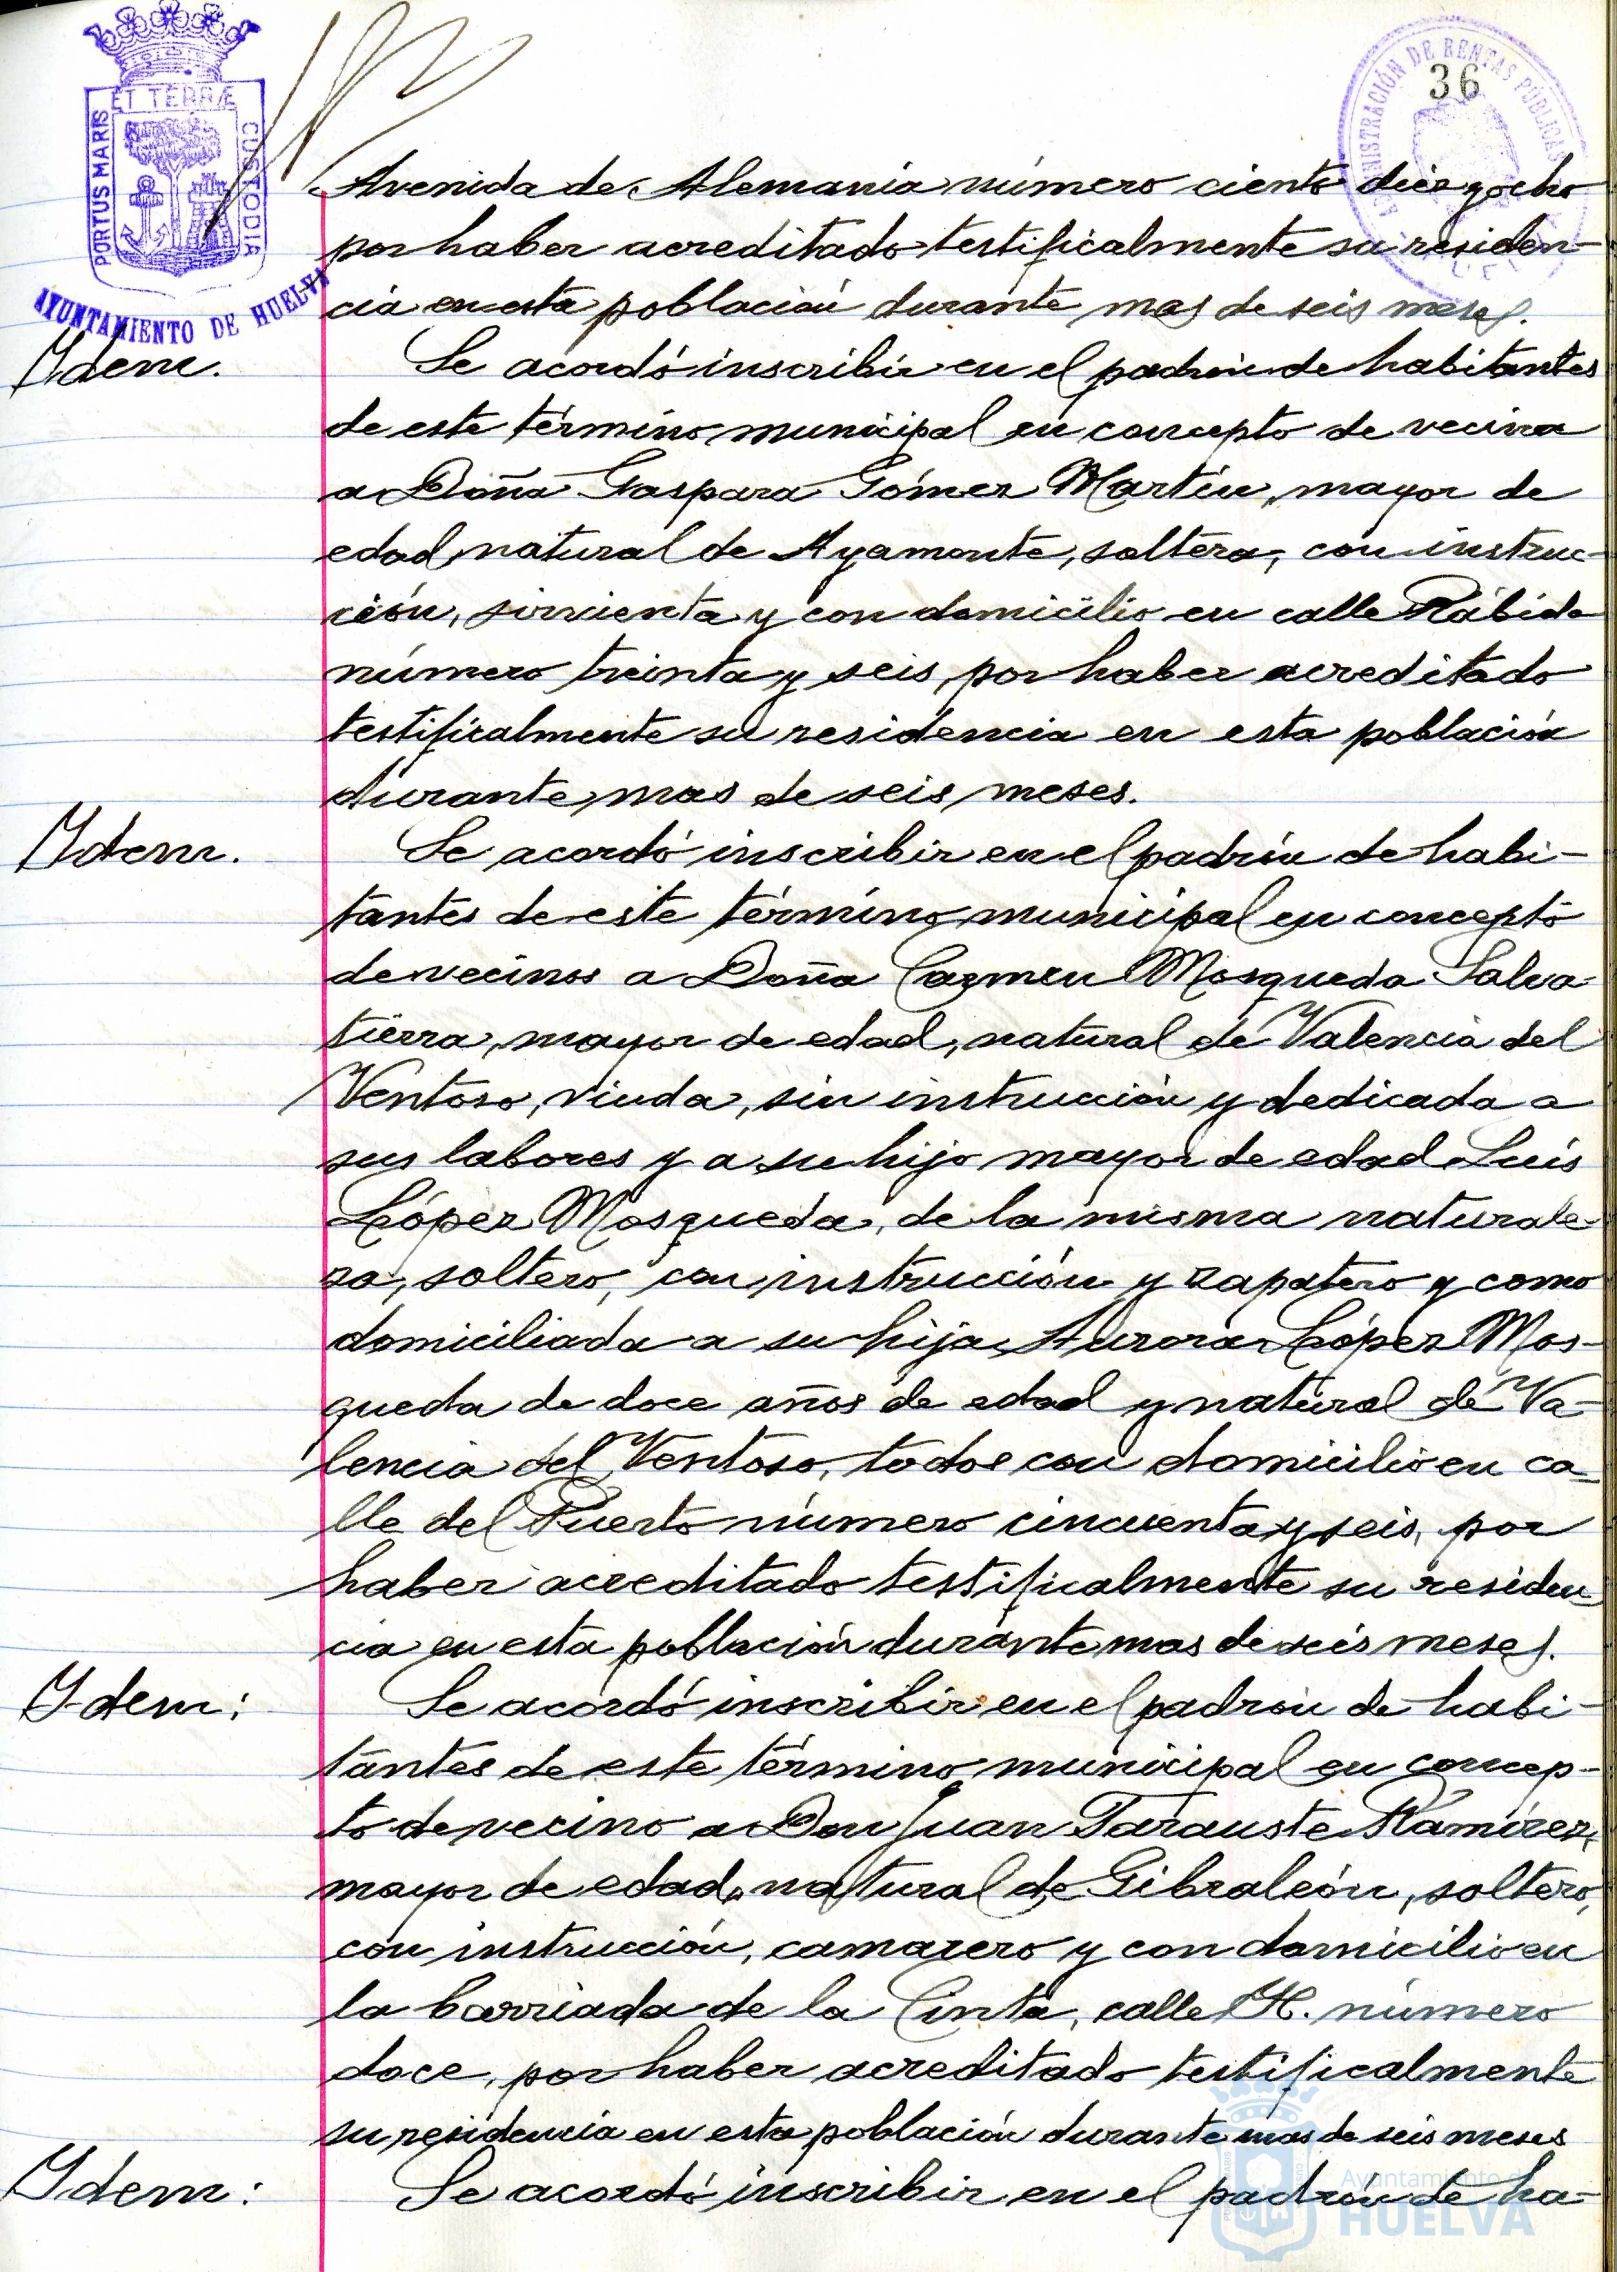 36
ET TERRÆ
PORTUS MARIS
CUSTODIA
AYUNTAMIENTO DE HUELVA
ADMINISTRACIÓN DE RENTAS PÚBLICAS
Avenida de Alemania número ciento diez y ocho
por haber acreditado testificalmente su residen-
cia en esta población durante mas de seis meses.
Idem.
Se acordó inscribir en el padrón de habitantes
de este término municipal en concepto de vecina
a Doña Gaspara Gómez Martín, mayor de
edad, natural de Ayamonte, soltera, con instruc-
ción, sirvienta y con domicilio en calle Rábida
número treinta y seis, por haber acreditado
testificalmente su residencia en esta población
durante mas de seis meses.
Idem.
Se acordó inscribir en el padrón de habi-
tantes de este término municipal en concepto
de vecinos a Doña Carmen Mosqueda Salva
tierra, mayor de edad, natural de Valencia del
Ventoso, viuda, sin instrucción y dedicada a
sus labores y a su hijo mayor de edad Luís
López Mosqueda, de la misma naturale-
za, soltero, con instrucción y zapatero y como
domiciliada a su hija Aurora López Mos-
queda de doce años de edad y natural de Va-
lencia del Ventoso, todos con domicilio en ca-
lle del Puerto número cincuenta y seis, por
haber acreditado testificalmente su residen-
cia en esta población durante mas de seis meses.
Idem:
Se acordó inscribir en el padrón de habi-
tantes de este término municipal en concep-
to de vecino a Don Juan Tarauste Ramírez,
mayor de edad, natural de Gibraleón, soltero,
con instrucción, camarero y con domicilio en
la barriada de la Cinta, calle H. número
doce, por haber acreditado testificalmente
su residencia en esta población durante mas de seis meses
Idem:
Se acordó inscribir en el padrón de ha-
Ayuntamiento de
HUELVA